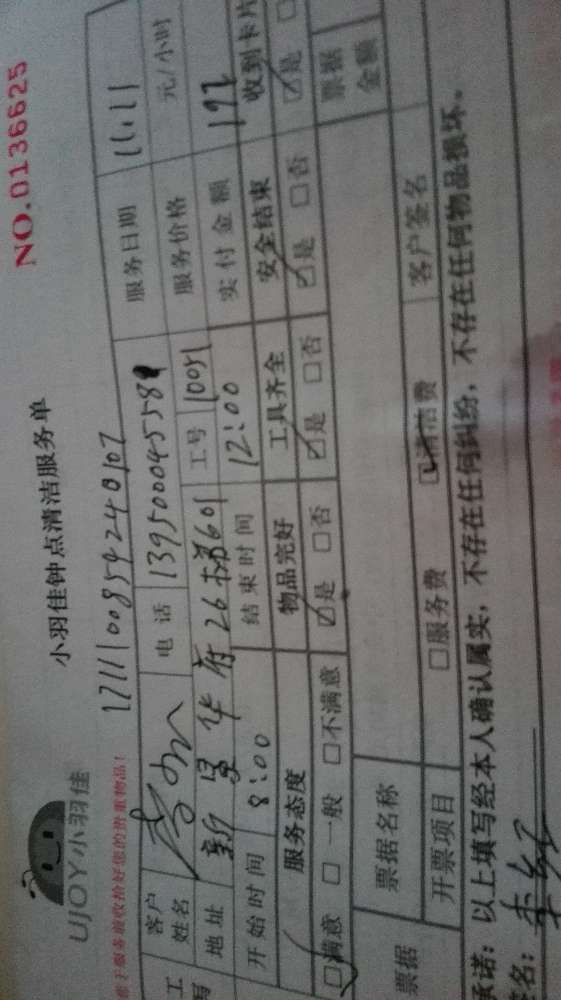 NO.0136625
UJOY小羽佳
小羽佳钟点清洁服务单
1711110085424010
客户姓名 电话 服务日期 11.11
地址 26栋601 工号 服务价格 元/小时
开始时间 8:00 结束时间 12:00 实付金额 192
服务态度 物品完好 工具齐全 安全结束 收到卡片
□满意 □一般 □不满意 □是 □否 □是 □否 □是 □否 □是
票据 票据名称 票据金额
开票项目 □服务费 □清洁费 客户签名
承诺：以上填写经本人确认属实，不存在任何纠纷，不存在任何物品损坏。
名：